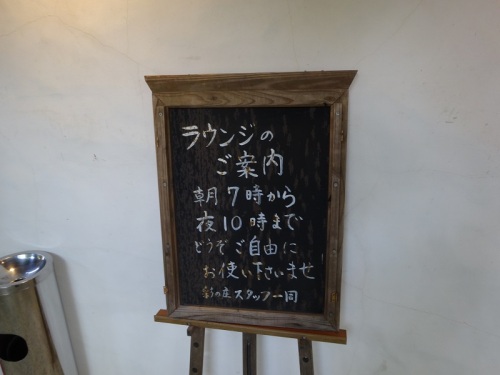 ラウンジの
ご案内
朝7時から
夜10時まで
どうぞご自由に
お使い下さいませ
彩の庄スタッフ一同